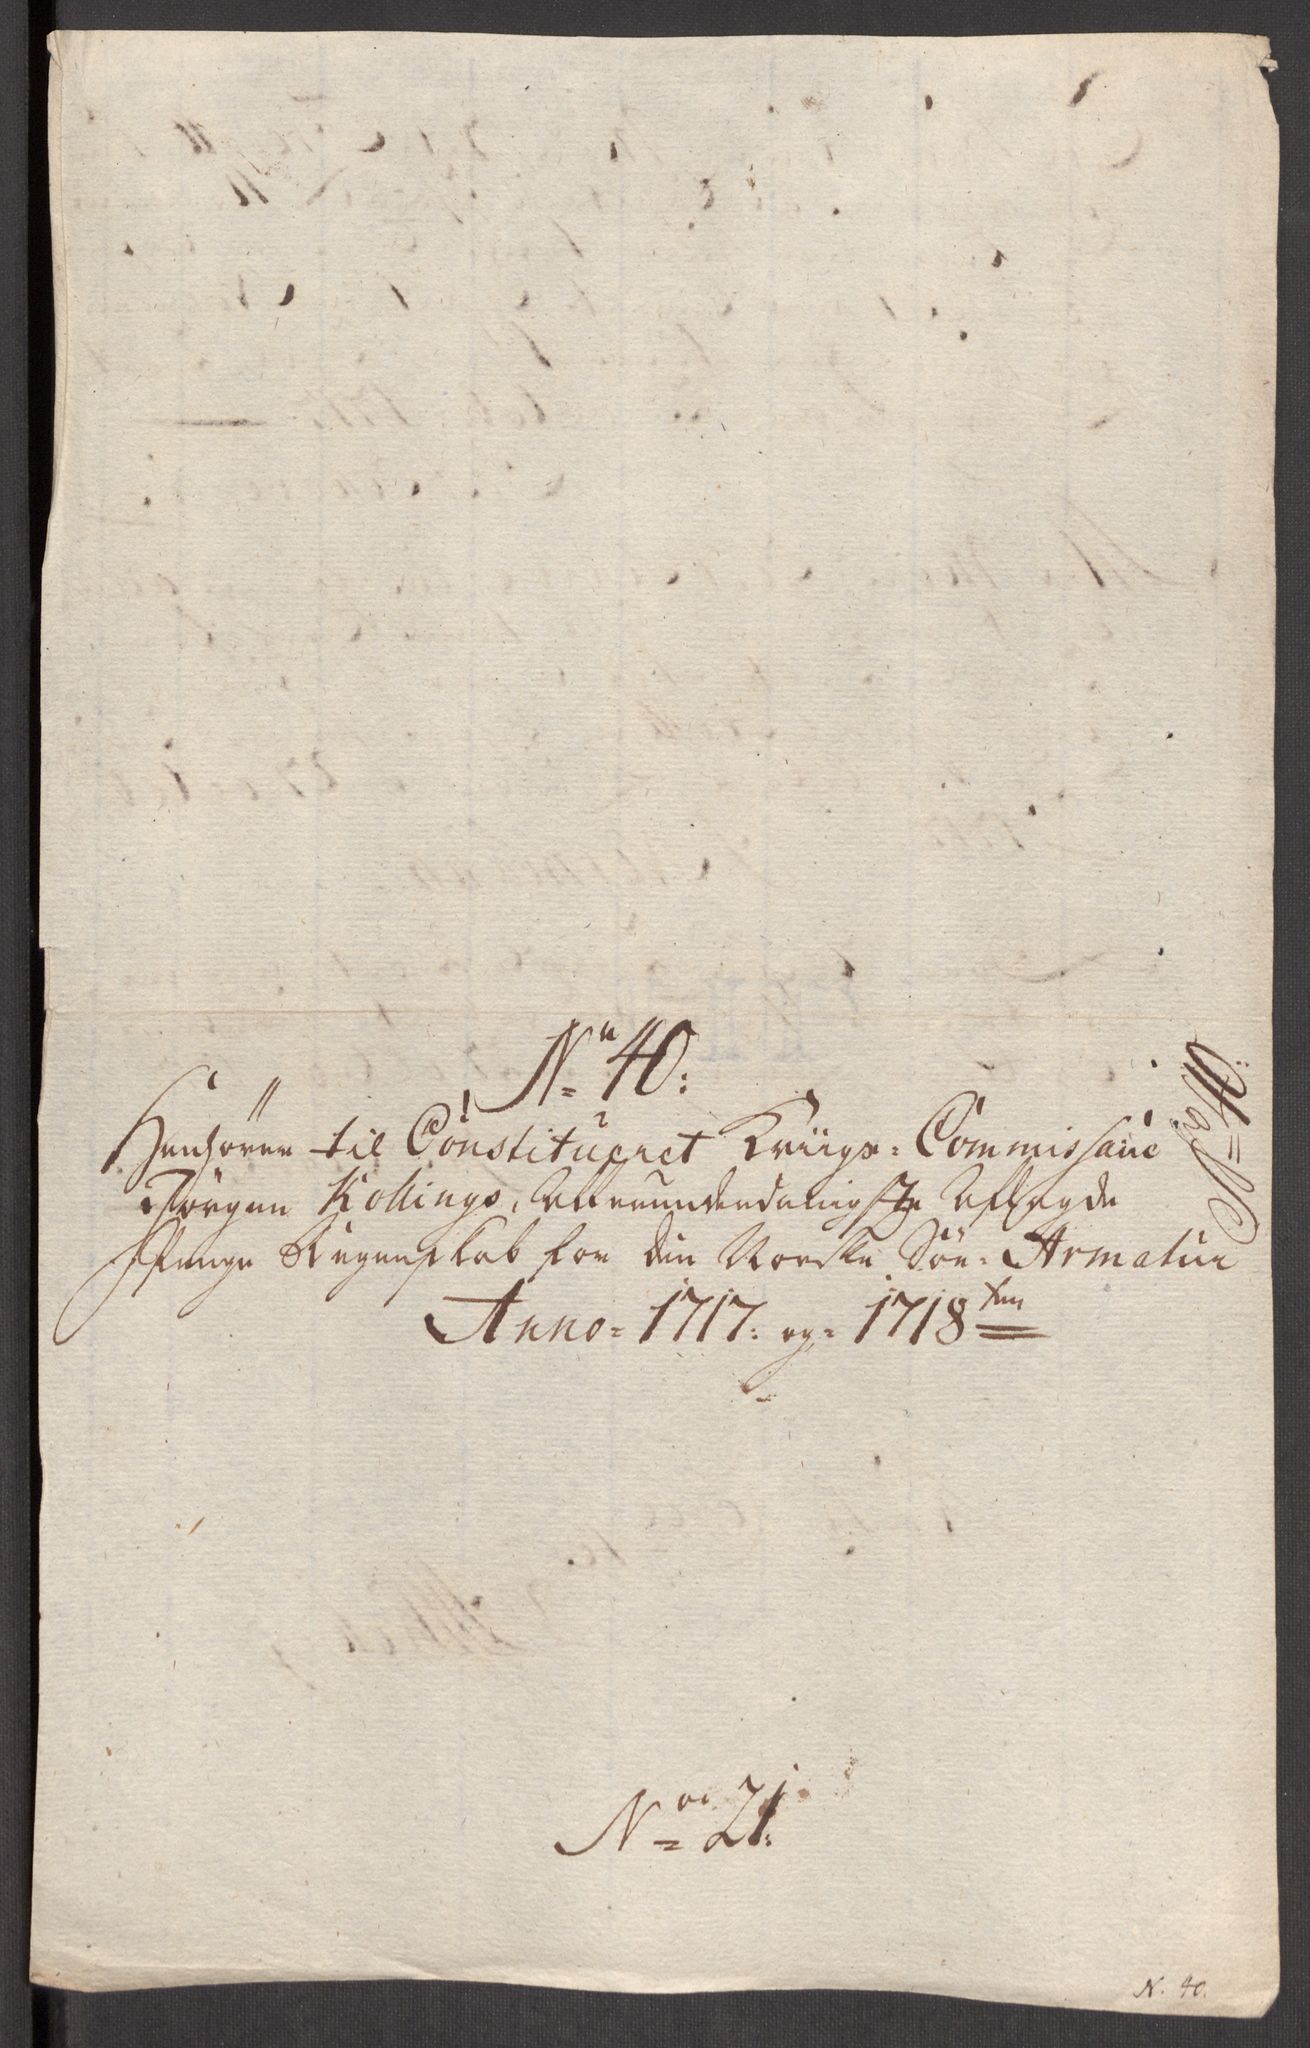 No 40:
Henhörer til Constitueret Kriigs-Commissarie
Jörgen Kollings, allerunderdanigste Aflagde
Penge Regenskab for den Norske Söe-Armatur
Anno 1717: og 1718ten
No 21:
N. 40.